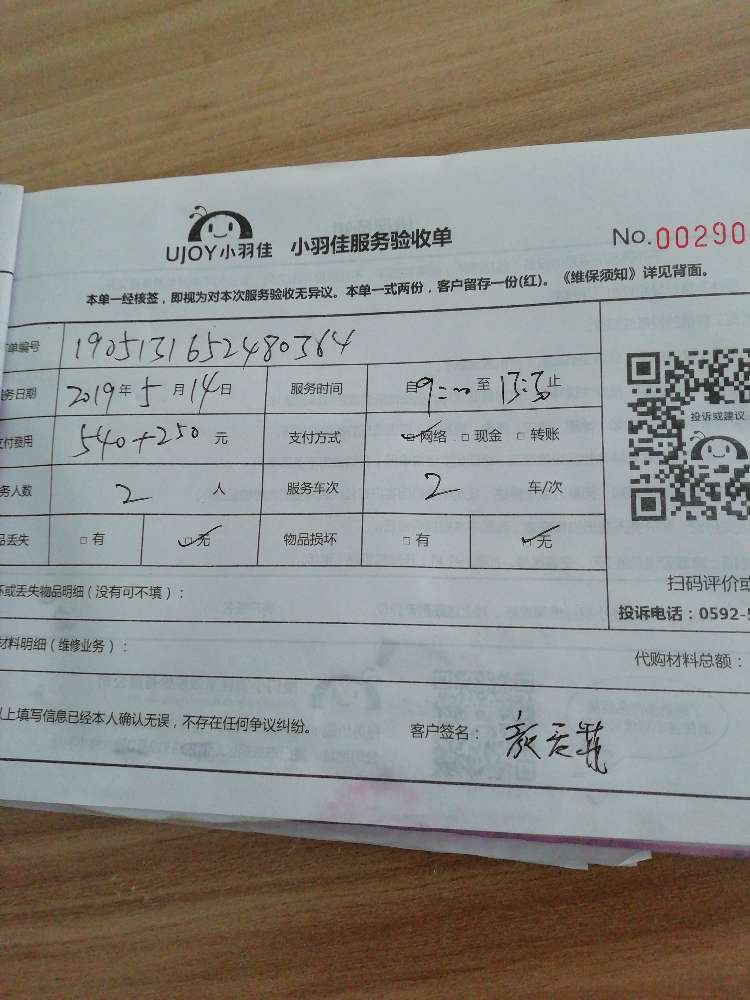 UJOY小羽佳 小羽佳服务验收单 No.00290
本单一经核签，即视为对本次服务验收无异议。本单一式两份，客户留存一份(红)。《维保须知》详见背面。
单编号 1905131652480364
务日期 2019年5月14日 服务时间 自9:00至13:30止
支付费用 540+250元 支付方式 网络 现金 转账
务人数 2人 服务车次 2车/次
品丢失 有 无 物品损坏 有 无
投诉或建议
坏或丢失物品明细（没有可不填）：
扫码评价或
投诉电话：0592-5
材料明细（维修业务）：
代购材料总额：
以上填写信息已经本人确认无误，不存在任何争议纠纷。 客户签名：